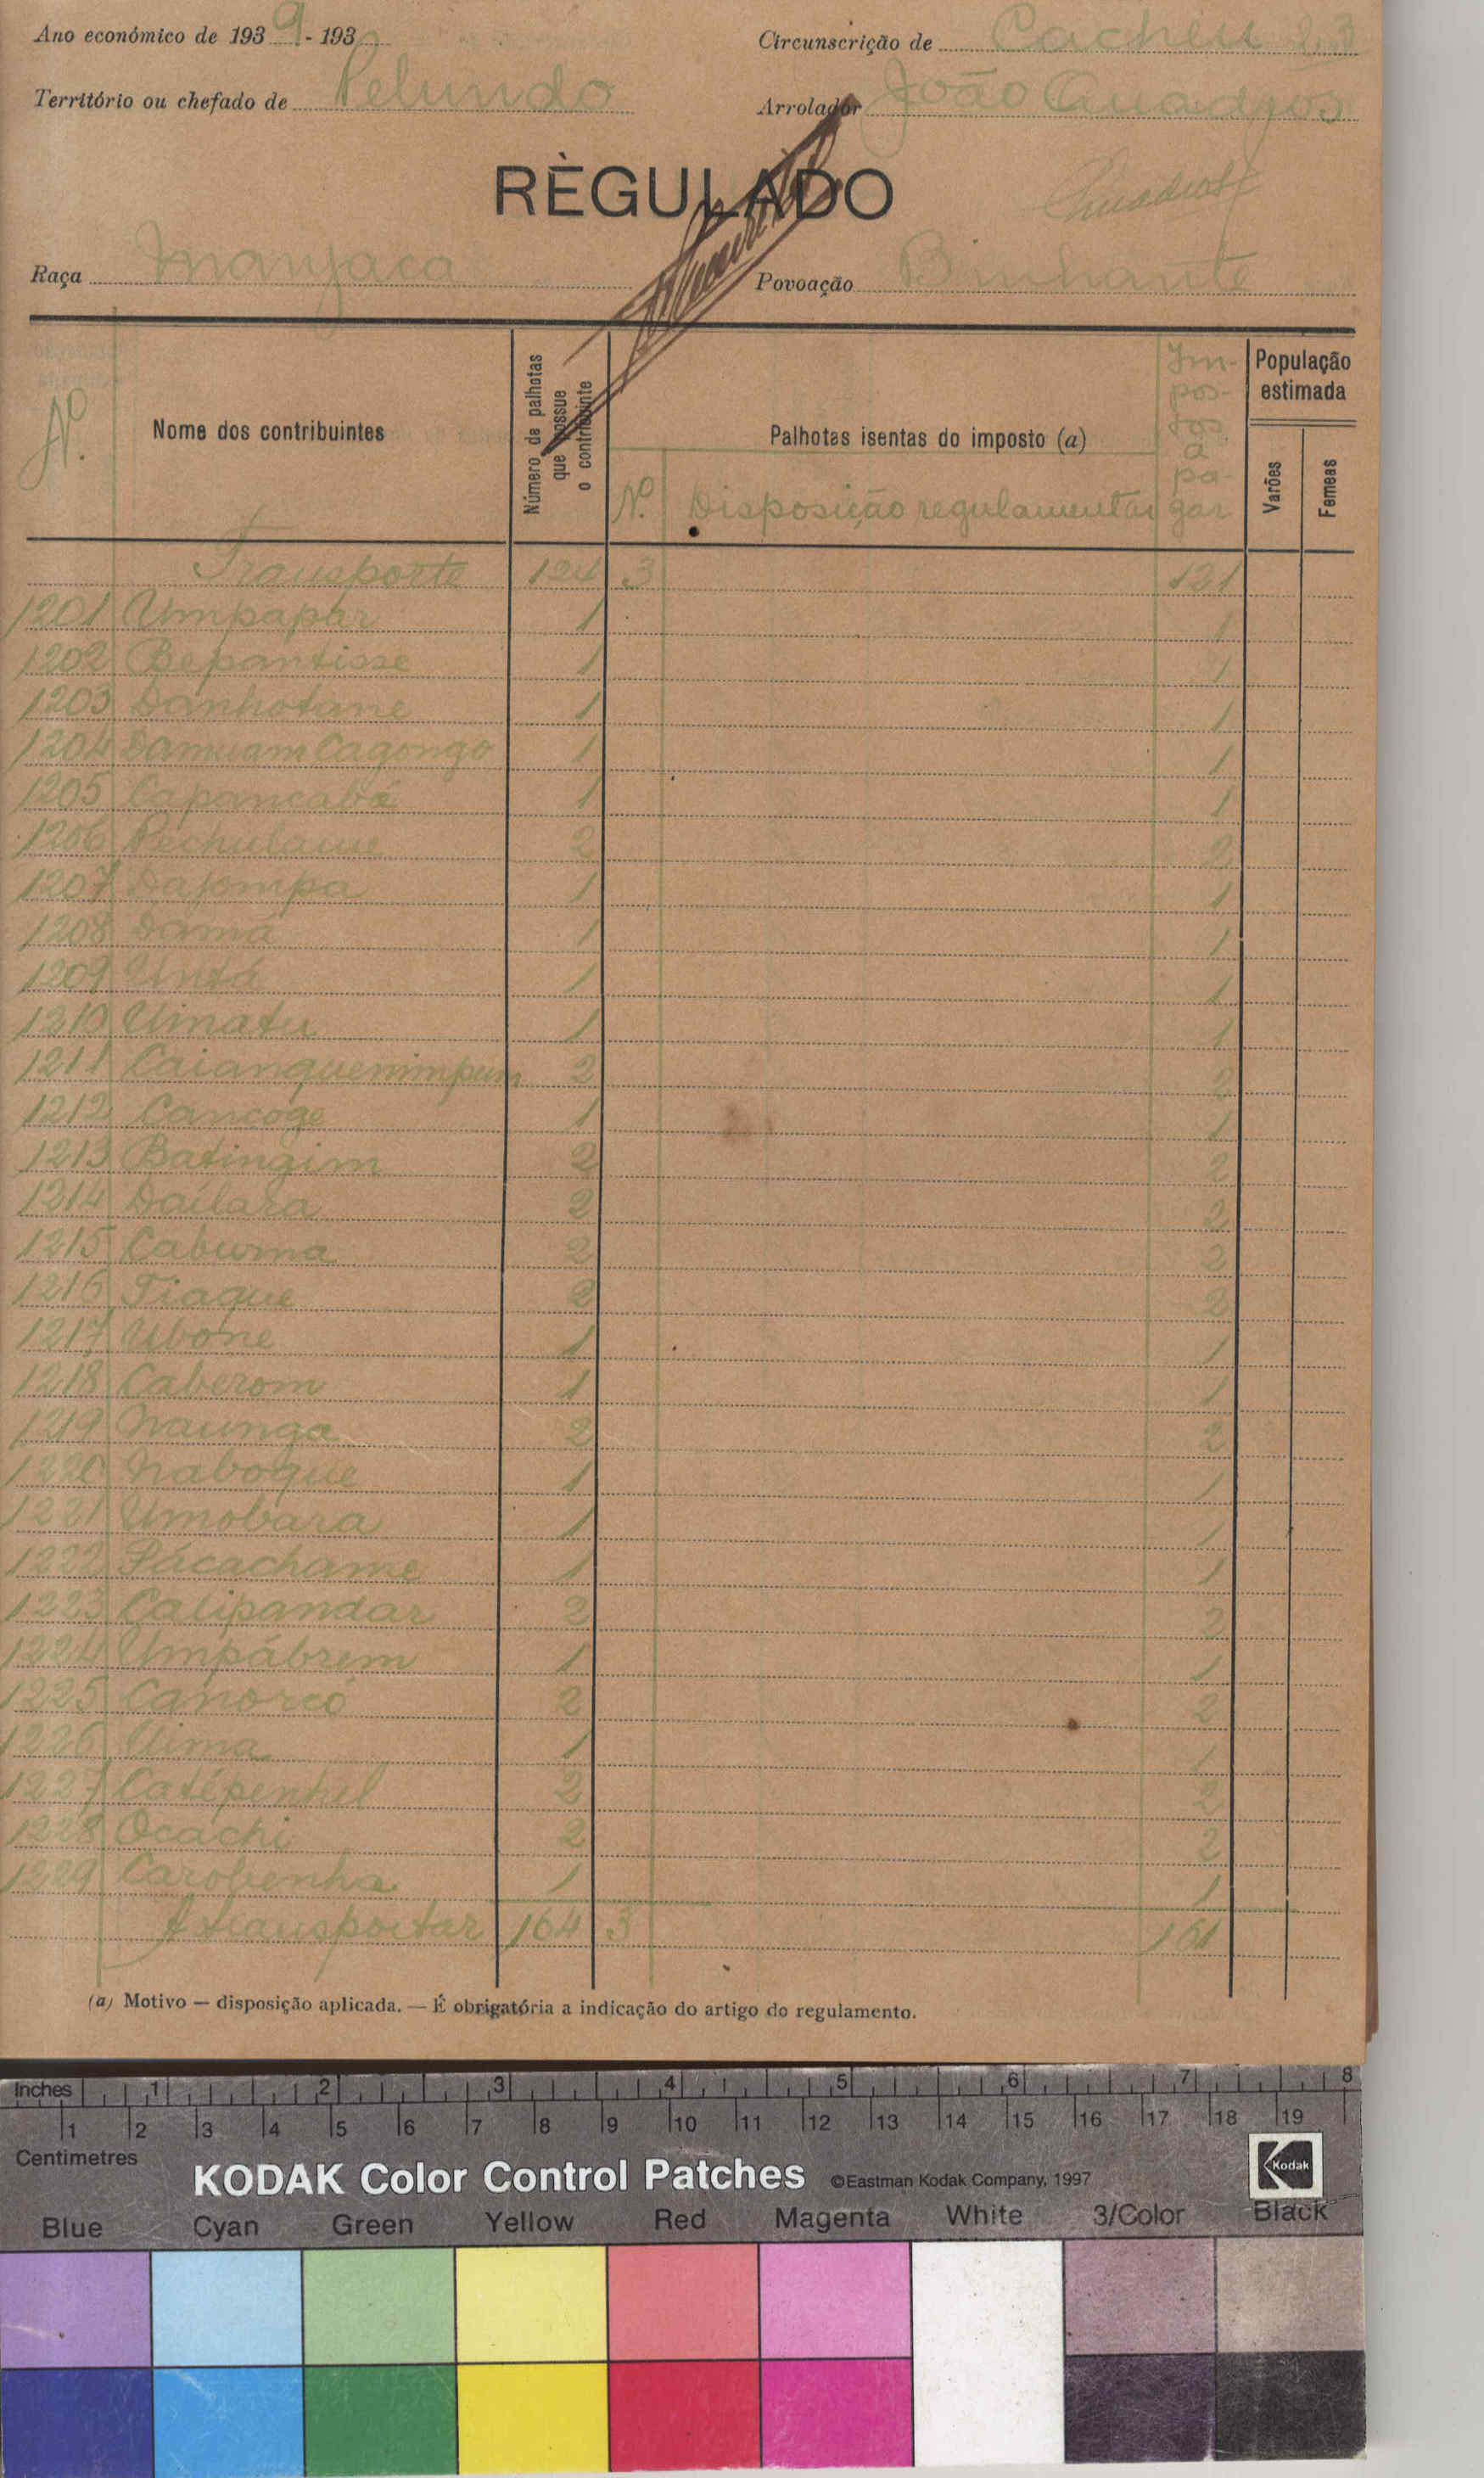 Ano económico de 1939-193
Circunscrição de Cacheu 23
Território ou chefado de Pelundo
Arrolador João Quadros
RÈGULADO
Raça Manjaca
Povoação Binhante
Nº
Nome dos contribuintes
Número de palhotas que possue o contribuinte
Palhotas isentas do imposto (a)
Nº Disposição regulamentar
Impostos a pagar
População estimada
Varões
Femeas
Transporte 124 3 121
1201 Umpapar 1 1
1202 Bepantisse 1 1
1203 Danhotane 1 1
1204 Damuam Cagongo 1 1
1205 Capancabá 1 1
1206 Pechulame 2 2
1207 Dajompa 1 1
1208 Damá 1 1
1209 Untá 1 1
1210 Uinatu 1 1
1211 Caianquenimpum 2 2
1212 Cancoge 1 1
1213 Batingim 2 2
1214 Dailara 2 2
1215 Cabuma 2 2
1216 Tiaque 2 2
1217 Ubone 1 1
1218 Caberom 1 1
1219 Naunga 2 2
1220 Naboque 1 1
1221 Umobara 1 1
1222 Pácachame 1 1
1223 Calipandar 2 2
1224 Umpábrem 1 1
1225 Canorcó 2 2
1226 Uima 1 1
1227 Catépenhel 2 2
1228 Ocachi 2 2
1229 Carobenha 1 1
A transportar 164 3 161
(a) Motivo — disposição aplicada. — É obrigatória a indicação do artigo do regulamento.
Inches 1 2 3 4 5 6 7 8
1 2 3 4 5 6 7 8 9 10 11 12 13 14 15 16 17 18 19
Centimetres
KODAK Color Control Patches ©Eastman Kodak Company, 1997 Kodak
Blue Cyan Green Yellow Red Magenta White 3/Color Black